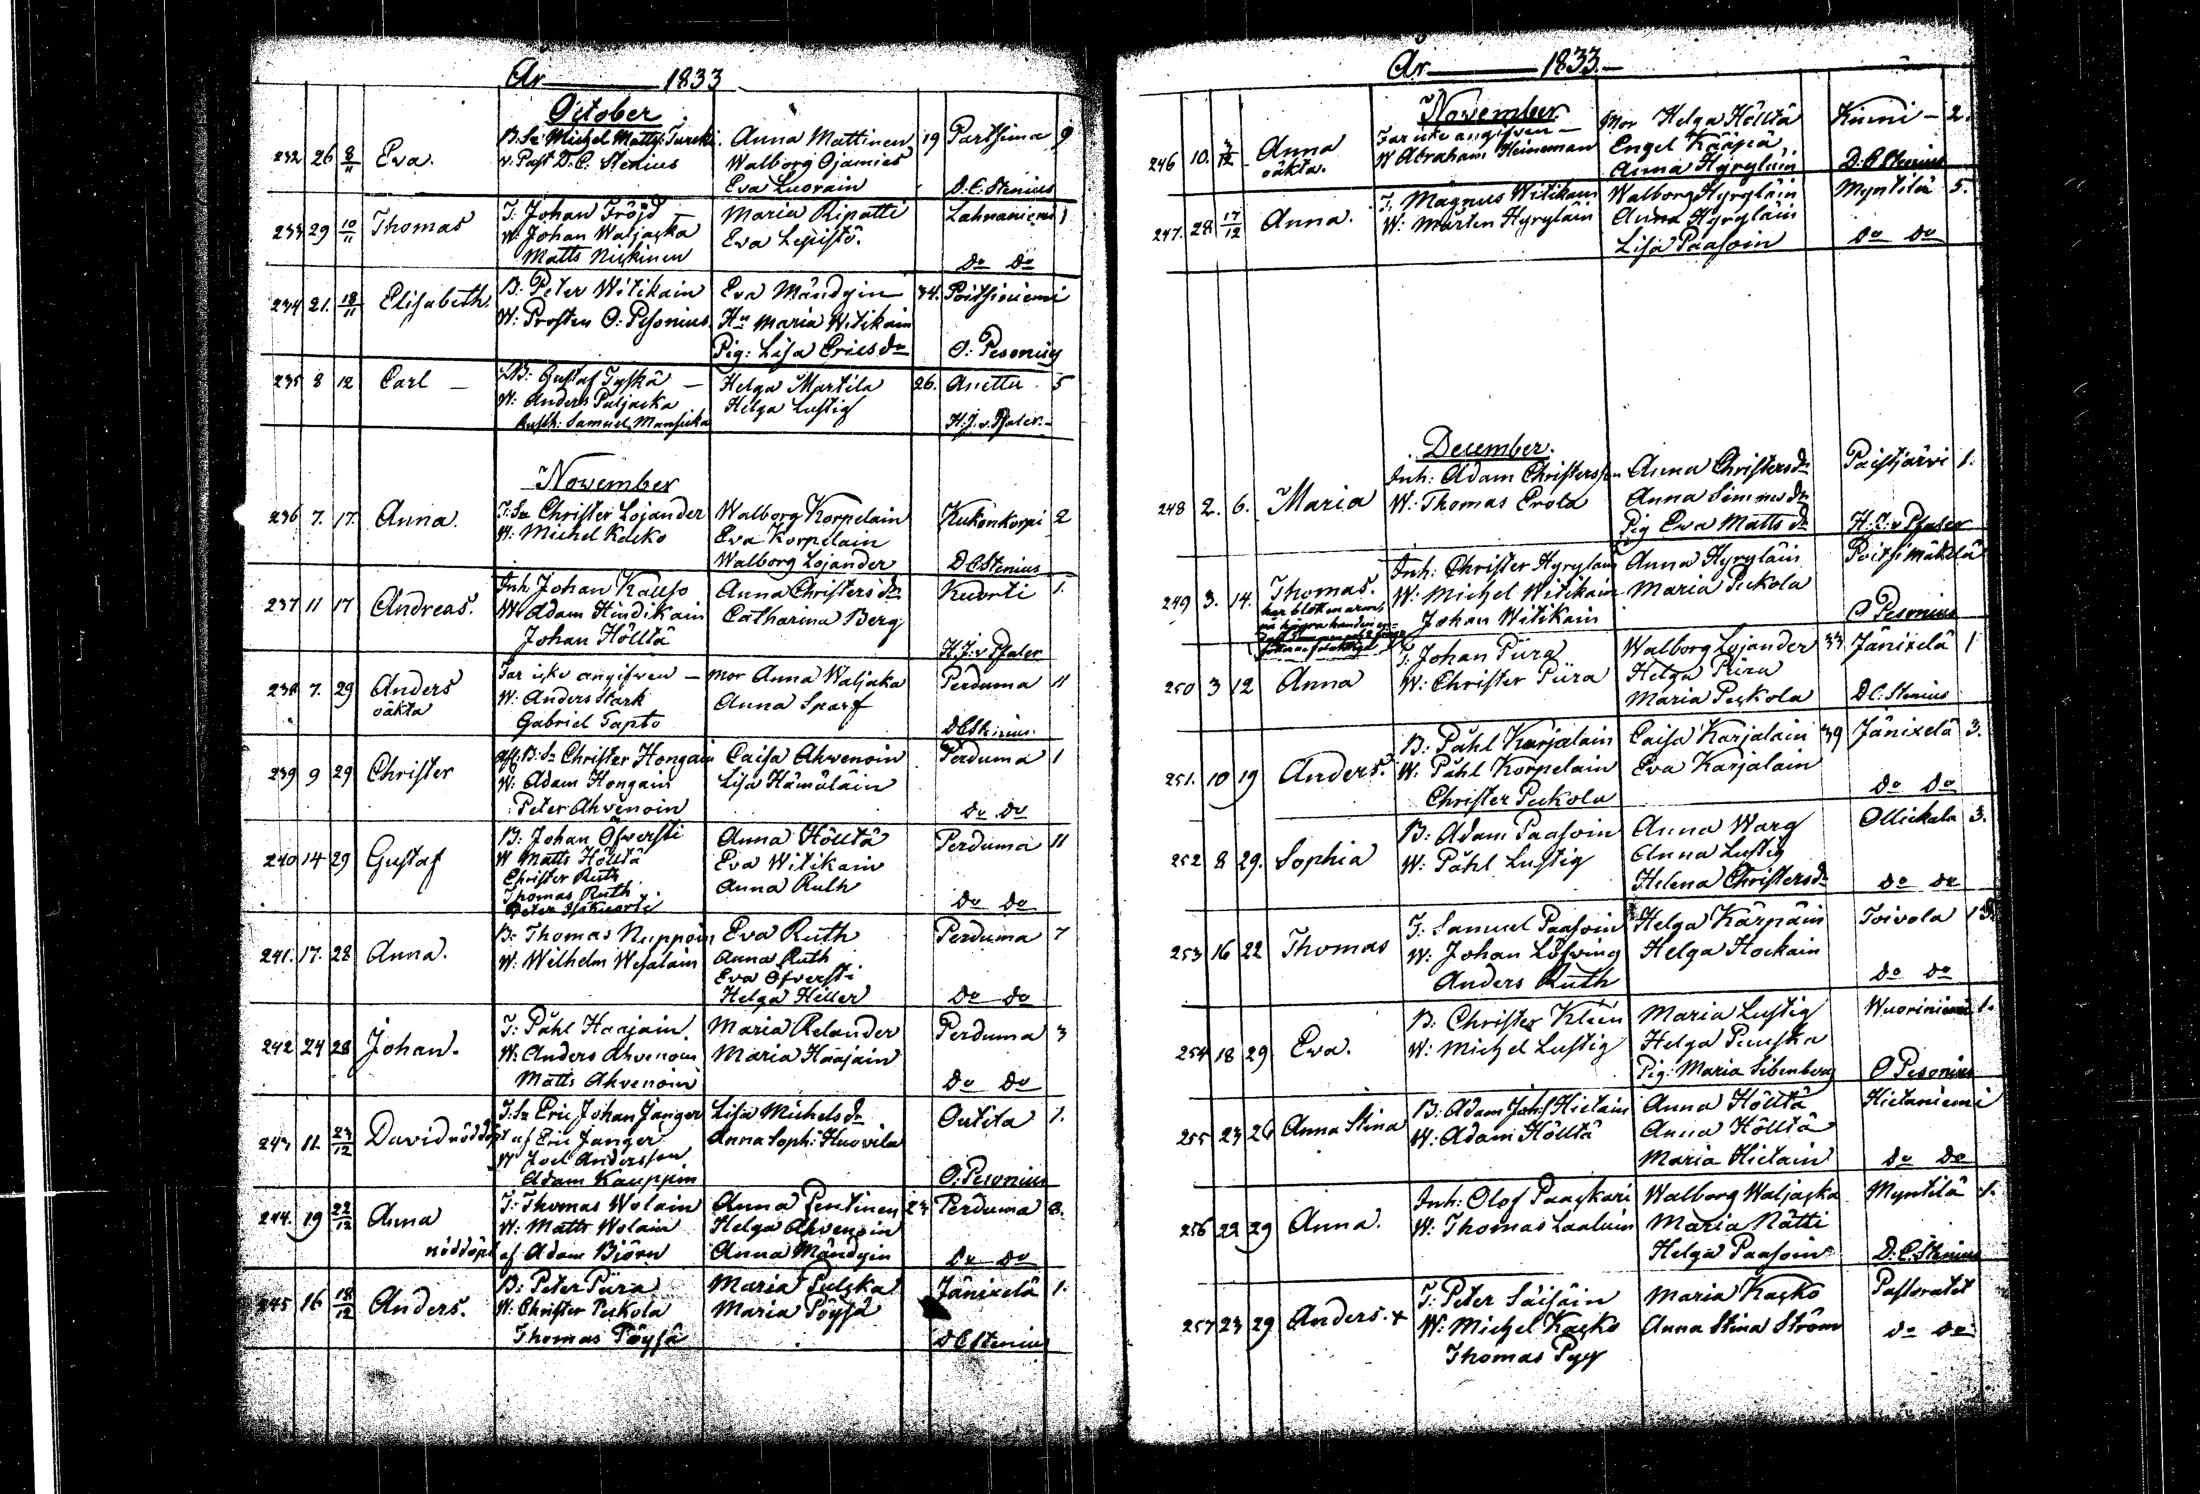 År 1833
October
232 26 8/11 Eva. B. Sn Michel Matts: Turcki. Anna Mattinen 19 Partsima 9
v. Past D. C. Stenius Walborg Ojamies
Eva Luorain D. C. Stenius
233 29 10/11 Thomas T. Johan Fröjd Maria Ripatti Lahnaniemi 1
W. Johan Waljacka Eva Lepistö.
Matts Niskinen Do Do
234 21. 18/11 Elisabeth B. Peter Witikain Eva Mändyin 34. Poitsiniemi
W: Prosten O: Pesonius Hu Maria Witikain
Pig: Lisa Ericsdr O: Pesonius
235 8 12 Carl — B: Gustaf Tyskä — Helga Martila 26. Anettu 5
W: Anders Paljacka Helga Lustig
Samuel Mansicka H. J. v. Pfaler.
November
236 7. 17. Anna. T. Sn Christer Lojander Walborg Korpelain Kukonkorpi 2
W. Michel Kasko Eva Korpelain
Walborg Lojander D C Stenius
237 11 17 Andreas. Inh Johan Kallso Anna Christersdr Kuorti 1.
W Adam Hindikain Catharina Berg
Johan Hölltä H. J. v Pfaler
238 7. 29 Anders Far icke angifven — mor Anna Waljaka Perduma 11
oäkta W: Anders Stark Anna Sparf
Gabriel Tapto D C Stenius.
239 9 29 Christer B: Sn Christer Hongain Caisa Ahvenoin Perduma 1
W: Adam Hongain Lisa Hämäläin
Peter Ahvenoin Do Do
240 14 29 Gustaf B: Johan Öfversti Anna Hölltä Perduma 11
W Matts Hölltä Eva Witikain
Christer Ruth Anna Ruth
Thomas Ruth
Peter Do Do
241. 17. 28 Anna. B: Thomas Nuppoin Eva Ruth Perduma 7
W: Wilhelm Wesalain Anna Ruth
Eva Öfversti
Helga Hiller Do Do
242 24 28 Johan. T: Påhl Haajain. Maria Relander Perduma 3
W: Anders Ahvenoin Maria Haajain
Matts Ahvenoin Do Do
243 11. 23/12 David nöddöpt T. Sn Eric Johan Janger Lisa Michelsdr Outila 1.
af Eric Janger Anna Soph: Huovila
W Joel Andersson
Adam Kauppin O: Pesonius
244. 19 22/12 Anna T: Thomas Wolain Anna Pentinen 23 Perduma 8.
W: Matts Wolain Helga Ahvenoin
nöddöpt af Adam Björn Anna Mändyin Do Do
245 16 18/12 Anders. B: Peter Püra Maria Pulska Jänixelä 1.
W: Christer Peskola Maria Pöysä
Thomas Pöysä D C Stenius
År 1833.
November
246 10. Anna Far icke angifven — Mor Helga Höllta Kinni — 2.
oäkta. W Abraham Heineman Engel Kääpiä
Anna Hyryläin D. C Stenius
247. 28. 17/12 Anna. T. Magnus Witikain Walborg Hyryläin Myntilä 5.
W: Mårten Hyryläin Anna Hyryläin
Lisa Paasoin Do Do
December.
248 2. 6. Maria Inh: Adam Christersson Anna Christersdr Paistjärvi 1.
W: Thomas Erola Anna Simmesdr
Pig Eva Mattsdr H. J. v Pfaler
249 3. 14. Thomas. Inh: Christer Hyryläin Anna Hyryläin Poitsimäkelä
har blott W: Michel Witikain Maria Peskola
på högra handen Johan Witikain O Pesonius
250 3 12 Anna T: Johan Püra Walborg Lojander 33 Jänixelä 1
W: Christer Püra Helga Püra
Maria Peskola D C. Stenius
251. 10 19 Anders. B: Påhl Karjalain Caisa Karjalain 39 Jänixelä 3.
W: Påhl Korpelain Eva Karjalain
Christer Peskola Do Do
252 8 29. Sophia B: Adam Paasoin Anna Warg Ollickala 3.
W: Påhl Lustig Anna Lustig
Helena Christersdr Do Do
253 16 22 Thomas T: Samuel Paasoin Helga Kärpäin Toivola 13.
W: Johan Löfving Helga Hockain
Anders Ruth Do Do
254 18 29 Eva. B: Christer Klein Maria Lustig Wuoriniemi 1.
W: Michel Lustig Helga Punska
Pig: Maria Sibenberg O Pesonius
255 23 26 Anna Stina B: Adam Johs Hietain Anna Höllta Hietaniemi
W: Adam Höllta Anna Höllta
Maria Hietain Do Do
256 22 29 Anna. Inh: Olof Paaskari Walborg Waljacka Myntilä 1.
W: Thomas Laaluin Maria Nätti
Helga Paasoin D: C. Stenius
257 23 29 Anders. + T: Peter Säisäin Maria Kasko Pastoratet
W: Michel Kasko Anna Stina Ström Do Do
Thomas Pyy